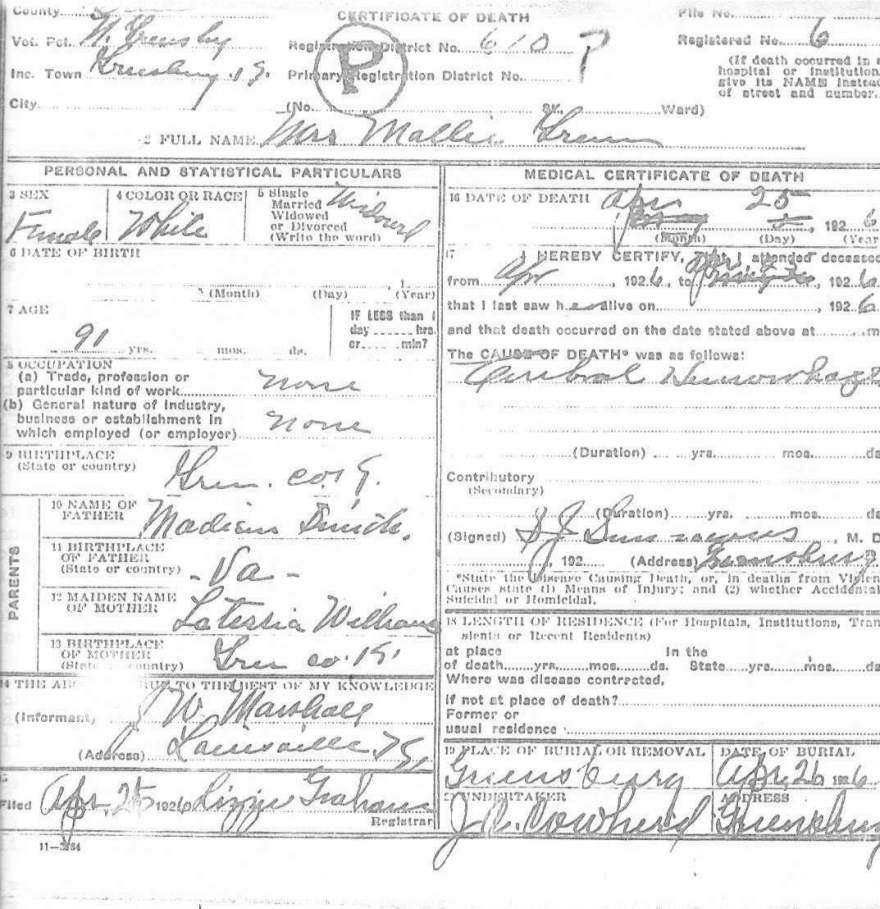 CERTIFICATE OF DEATH
County
File No.
Vot. Pct. N. Greensburg
Registration District No. 610
Registered No. 6
Inc. Town Greensburg, Ky.
Primary Registration District No.
(If death occurred in a hospital or institution, give its NAME instead of street and number.
P
City (No. St. Ward)
2 FULL NAME Mrs Mallie
PERSONAL AND STATISTICAL PARTICULARS
3 SEX Female
4 COLOR OR RACE White
5 Single Married Widowed or Divorced (Write the word) Widowed
6 DATE OF BIRTH
(Month) (Day) (Year)
7 AGE
91 yrs. mos. ds.
IF LESS than 1 day hrs. or min?
8 OCCUPATION
(a) Trade, profession or particular kind of work none
(b) General nature of industry, business or establishment in which employed (or employer) none
9 BIRTHPLACE (State or country) Gren. co. Ky.
PARENTS
10 NAME OF FATHER Madison
11 BIRTHPLACE OF FATHER (State or country) - Va -
12 MAIDEN NAME OF MOTHER
13 BIRTHPLACE OF MOTHER (State or country) Gren co. Ky.
14 THE ABOVE IS TRUE TO THE BEST OF MY KNOWLEDGE
(Informant) J W Marshall
(Address) Louisville, Ky
Filed Apr. 25 1926 Lizzie Graham
Registrar
11-3184
MEDICAL CERTIFICATE OF DEATH
16 DATE OF DEATH Apr 25, 1926
(Month) (Day) (Year)
17 I HEREBY CERTIFY, That I attended deceased
from Apr, 1926, to, 1926
that I last saw her alive on, 1926
and that death occurred on the date stated above at m
The CAUSE OF DEATH* was as follows:
Cerebral Hemorrhage
(Duration) yrs. mos. ds
Contributory
(Secondary)
(Duration) yrs. mos. ds
(Signed) S J Simmons, M. D
, 192 (Address) Greensburg
*State the Disease Causing Death, or, in deaths from Violent
Causes state (1) Means of Injury; and (2) whether Accidental
Suicidal or Homicidal.
18 LENGTH OF RESIDENCE (For Hospitals, Institutions, Tran
sients or Recent Residents)
at place In the
of death yrs. mos. ds. State yrs. mos. ds
Where was disease contracted,
if not at place of death?
Former or
usual residence
19 PLACE OF BURIAL OR REMOVAL DATE OF BURIAL
Greensburg Apr, 26 1926
UNDERTAKER ADDRESS
J. R. Cowherd Greensburg